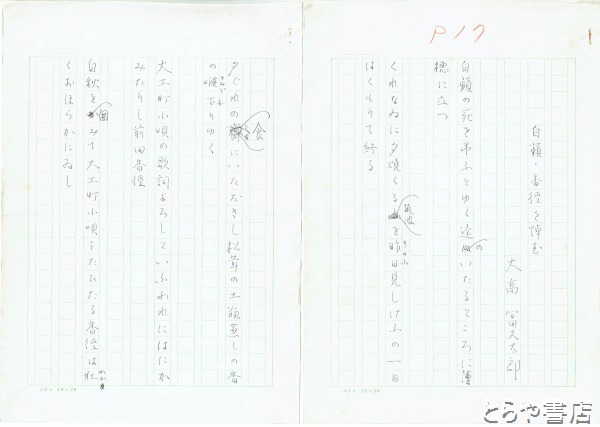 P17
白頴・香径を悼む
大高冨久太郎
白頴の死を弔ふとゆく途のいたるところに
穂に立つ
くれなゐに夕焼くる筑波を昨日見しけふの一日
きのふ
はくもりて終る
夕ぐれの食にいただきし松茸の土瓶蒸しの香
の喉下りゆく
のみど
大工町小唄の歌詞よろしといふわれにはにか
みたりし前田香径
白秋を囲みて大工町小唄うたひたる香径は
わか
くおほらかにゐし
コクヨ 10×20
コクヨ 10×20
とらや書店